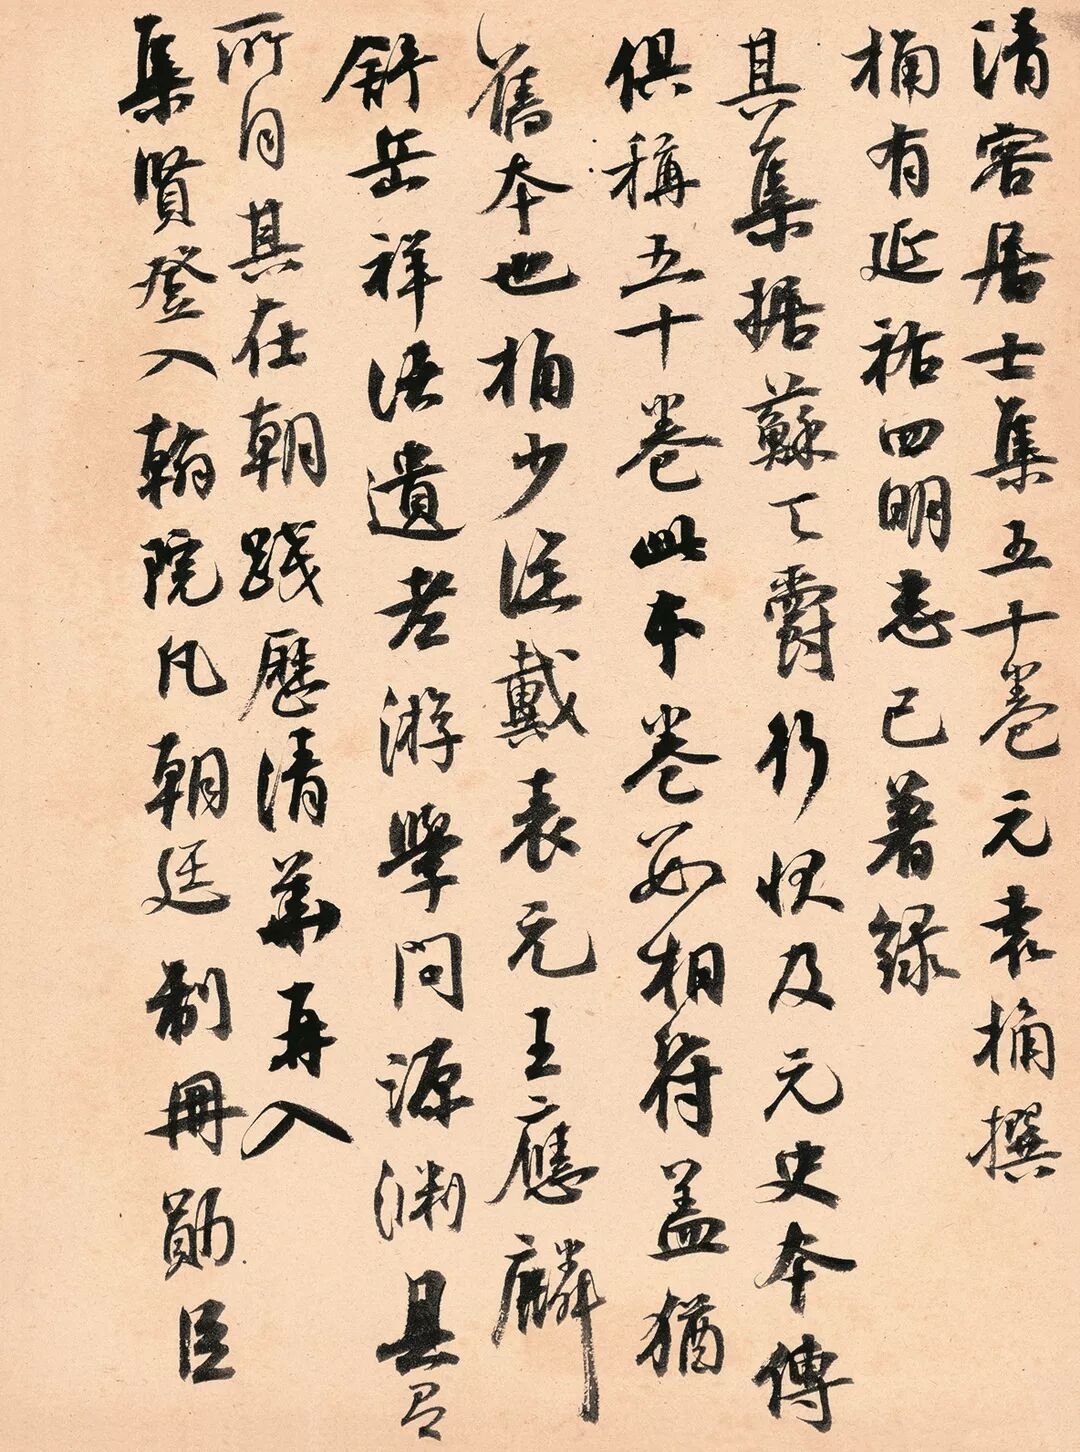 清容居士集五十卷元袁桷撰
桷有延祐四明志已著錄
其集据蘇天爵行狀及元史本傳
俱稱五十卷此本卷數相符蓋猶
舊本也桷少從戴表元王應麟
舒岳祥諸遺老游學問源淵具有
所自其在朝踐歷清華再入
集賢登入翰院凡朝廷制冊勛臣